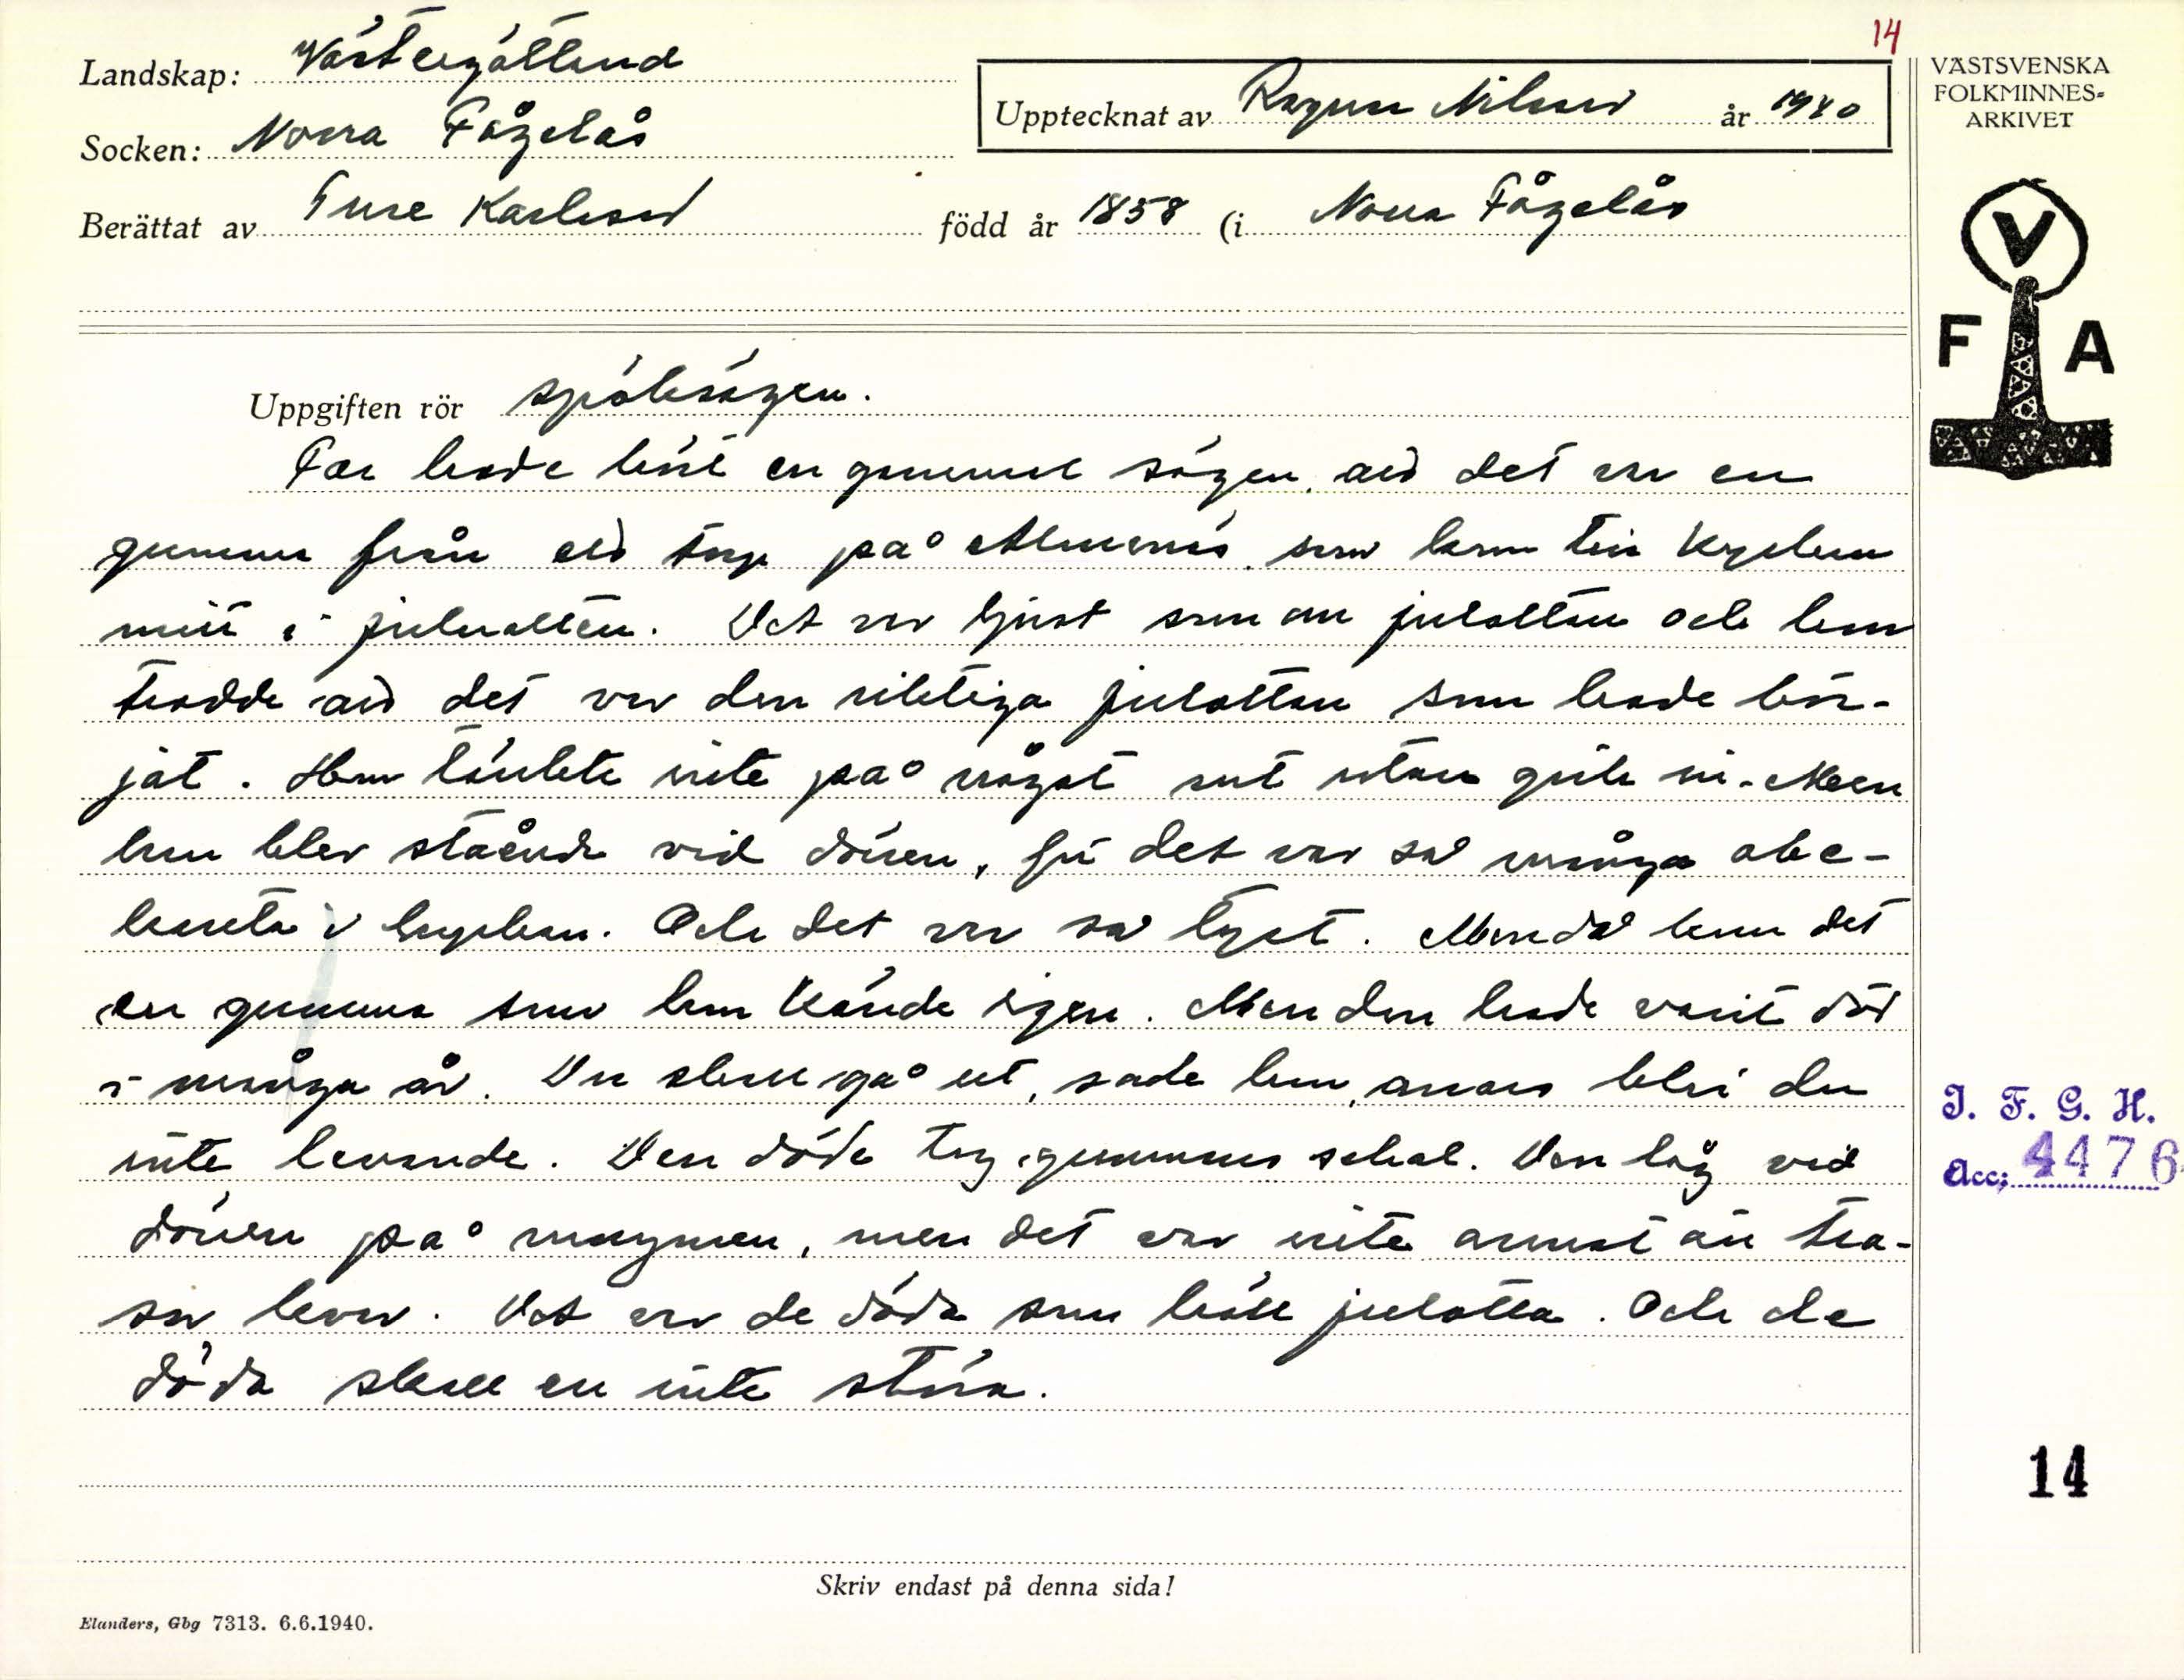 14
Landskap: Västergötland
Upptecknat av Ragnar Nilsson år 1940
Socken: Norra Fågelås
Berättat av Ture Karlsson född år 1858 (i Norra Fågelås
VÄSTSVENSKA
FOLKMINNES=
ARKIVET
V
F A
Uppgiften rör spöksägen.
Far hade hört en gammal sägen, att det var en
gumma från ett torp på Almenäs som kom till kyrkan
mitt i julnatten. Det var ljust som om julottan och hon
trodde att det var den riktiga julottan som hade bör-
jat. Hon tänkte inte på något ont utan gick in. Men
hon blev stående vid dören, för det var så många obe-
kanta i kyrkan. Och det var så tyst. Men då kom det
en gumma som hon kände igen. Men den hade varit död
i många år. Du skall gå ut, sade hon, annars blir du
inte levande. Den döda tog gummans schal. Den låg vid
dören på morgonen, men det var inte annat än tra-
sor kvar. Det var de döda som höll julotta. Och de
döda skall en inte störa.
I. F. G. H.
Acc: 4476
14
Skriv endast på denna sida!
Elanders, Gbg 7313. 6.6.1940.